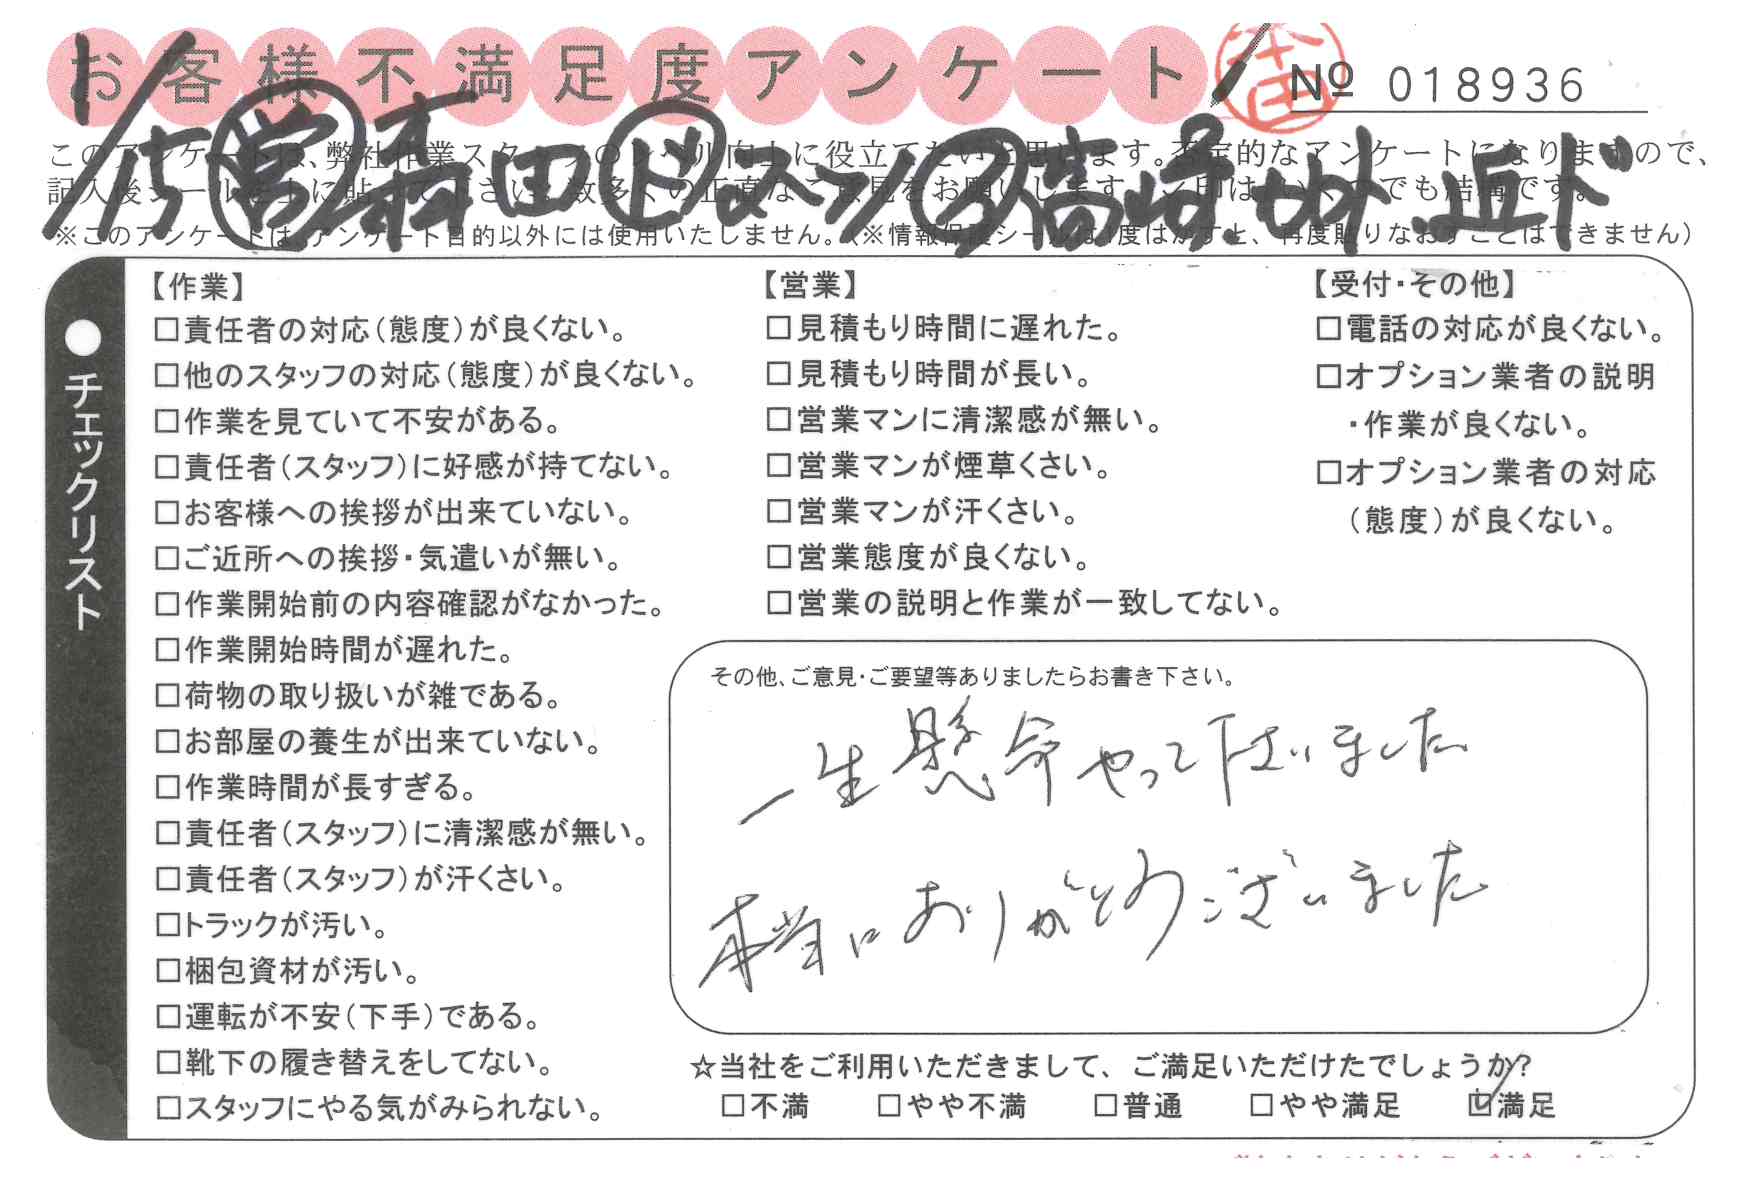 お客様不満足度アンケート
№ 018936
1/15 営 森田 ド 高崎
このアンケートは、弊社作業スタッフのレベル向上に役立てたいと思います。否定的なアンケートになりますので、
記入後シールを上に貼って下さい。数多くの正直なご意見をお願いします。
※このアンケートは、アンケート目的以外には使用いたしません。(※情報保護シールは1度はがすと、再度貼りなおすことはできません)
●チェックリスト
【作業】
□責任者の対応(態度)が良くない。
□他のスタッフの対応(態度)が良くない。
□作業を見ていて不安がある。
□責任者(スタッフ)に好感が持てない。
□お客様への挨拶が出来ていない。
□ご近所への挨拶・気遣いが無い。
□作業開始前の内容確認がなかった。
□作業開始時間が遅れた。
□荷物の取り扱いが雑である。
□お部屋の養生が出来ていない。
□作業時間が長すぎる。
□責任者(スタッフ)に清潔感が無い。
□責任者(スタッフ)が汗くさい。
□トラックが汚い。
□梱包資材が汚い。
□運転が不安(下手)である。
□靴下の履き替えをしてない。
□スタッフにやる気がみられない。
【営業】
□見積もり時間に遅れた。
□見積もり時間が長い。
□営業マンに清潔感が無い。
□営業マンが煙草くさい。
□営業マンが汗くさい。
□営業態度が良くない。
□営業の説明と作業が一致してない。
【受付・その他】
□電話の対応が良くない。
□オプション業者の説明
・作業が良くない。
□オプション業者の対応
(態度)が良くない。
その他、ご意見・ご要望等ありましたらお書き下さい。
一生懸命やって下さいました
本当にありがとうございました
☆当社をご利用いただきまして、ご満足いただけたでしょうか?
□不満 □やや不満 □普通 □やや満足 ☑満足